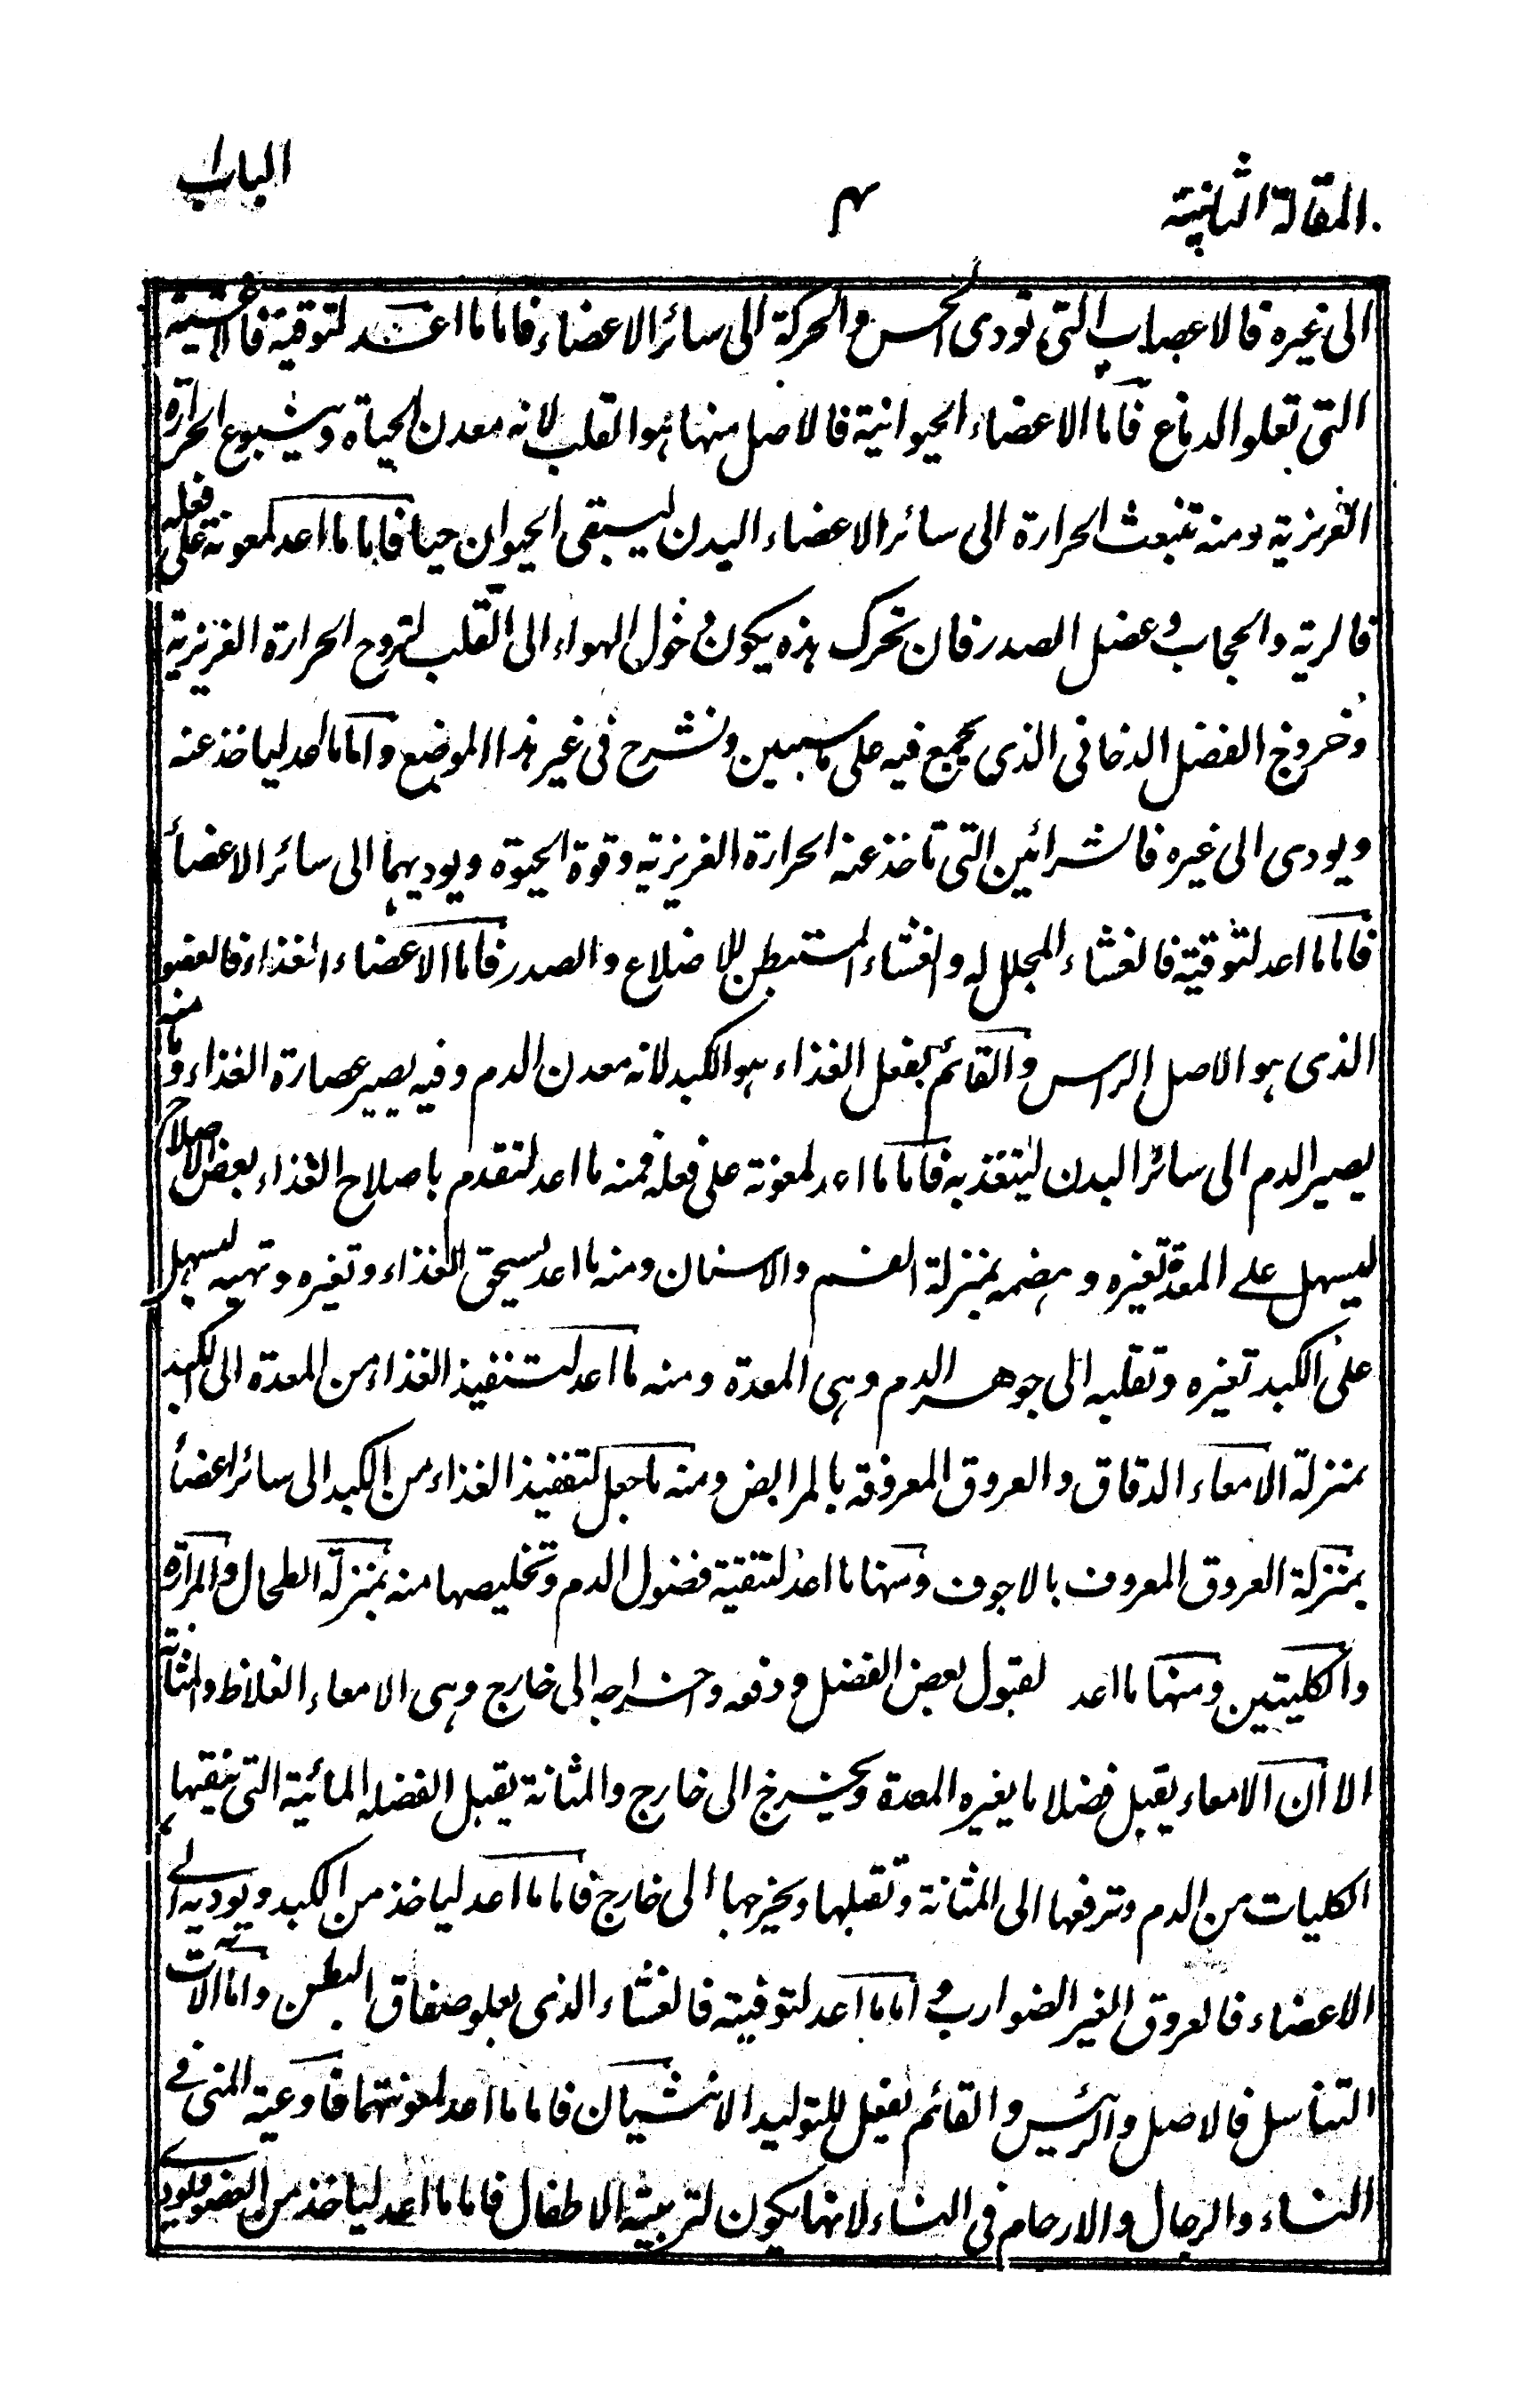 المقالة الثانية
۴
الباب ا
الى غيره فالاعصاب التى تودى الحس والحركة الى سائر الاعضاء فاما ما اعد لتوقية فالاغشية
التى تعلو الدماغ فاما الاعضاء الحيوانية فالاصل منها هو القلب لانه معدن الحياة وينبوع الحرارة
الغريزية ومنه تنبعث الحرارة الى سائر الاعضاء البدن ليبقى الحيوان حيا فاما ما اعد لمعونة على فعله
فالرية والحجاب وعضل الصدر فان تحرك هذه يكون دخول الهواء الى القلب لتروح الحرارة الغريزية
وخروج الفضل الدخانى الذى يجمع فيه على ما سيبين ونشرح فى غير هذا الموضع واما ما اعد لياخذ عنه
ويودى الى غيره فالشرائين التى تاخذ عنه الحرارة الغريزية وقوة الحيوة ويوديهما الى سائر الاعضاء
فاما ما اعد لتوقية فالغشاء المجلل له والغشاء المستبطن للاضلاع والصدر فاما الاعضاء الغذاء فالعضو
الذى هو الاصل الراس والقائم بفعل الغذاء هو الكبد لانه معدن الدم وفيه يصير عصارة الغذاء وما منه
يصير الدم الى سائر البدن ليتغذ به فاما ما اعد لمعونة على فعله فمنه ما اعد لتقدم باصلاح الغذاء بعض الاصلاح
ليسهل على المعدة تغيره وهضمه بمنزلة الفم والاسنان ومنه ما اعد لسيحق الغذاء وتغيره وتهيه ليسهل
على الكبد تغيره وتقلبه الى جوهر الدم وهى المعدة ومنه ما اعد لتنفيذ الغذاء من المعدة الى الكبد
بمنزلة الامعاء الدقاق والعروق المعروفة بالمرابض ومنه ما جعل لتنفيذ الغذاء من الكبد الى سائر اعضاء
بمنزلة العروق المعروف بالاجوف ومنها ما اعد لتنقية فضول الدم وتخليصها منه بمنزلة الطحال والمرارة
والكليتين ومنها ما اعد لقبول بعض الفضل ودفعه واخراجه الى خارج وهى الامعاء الغلاظ والمثانة
الا ان الامعاء يقبل فضلا ما يغيره المعدة ويخرج الى خارج والمثانة يقبل الفضله المائية التى ينقيها
الكليات من الدم وترفعها الى المثانة وتقبلها ويخرجها الى خارج فاما ما اعد لياخذ من الكبد ويوديه الى
الاعضاء فالعروق الغير الضوارب و اما ما اعد لتوقيته فالغشاء الذى يعلو صفاق البطن واما الات
التناسل فالاصل والرئيس والقائم بفعل للتوليد الانثيان فاما ما اعد لمعونتهما فاوعية المنى فى
النساء والرجال والارحام فى النساء لانها يكون لتربية الاطفال فاما ما اعد لياخذ من العضو ويودى